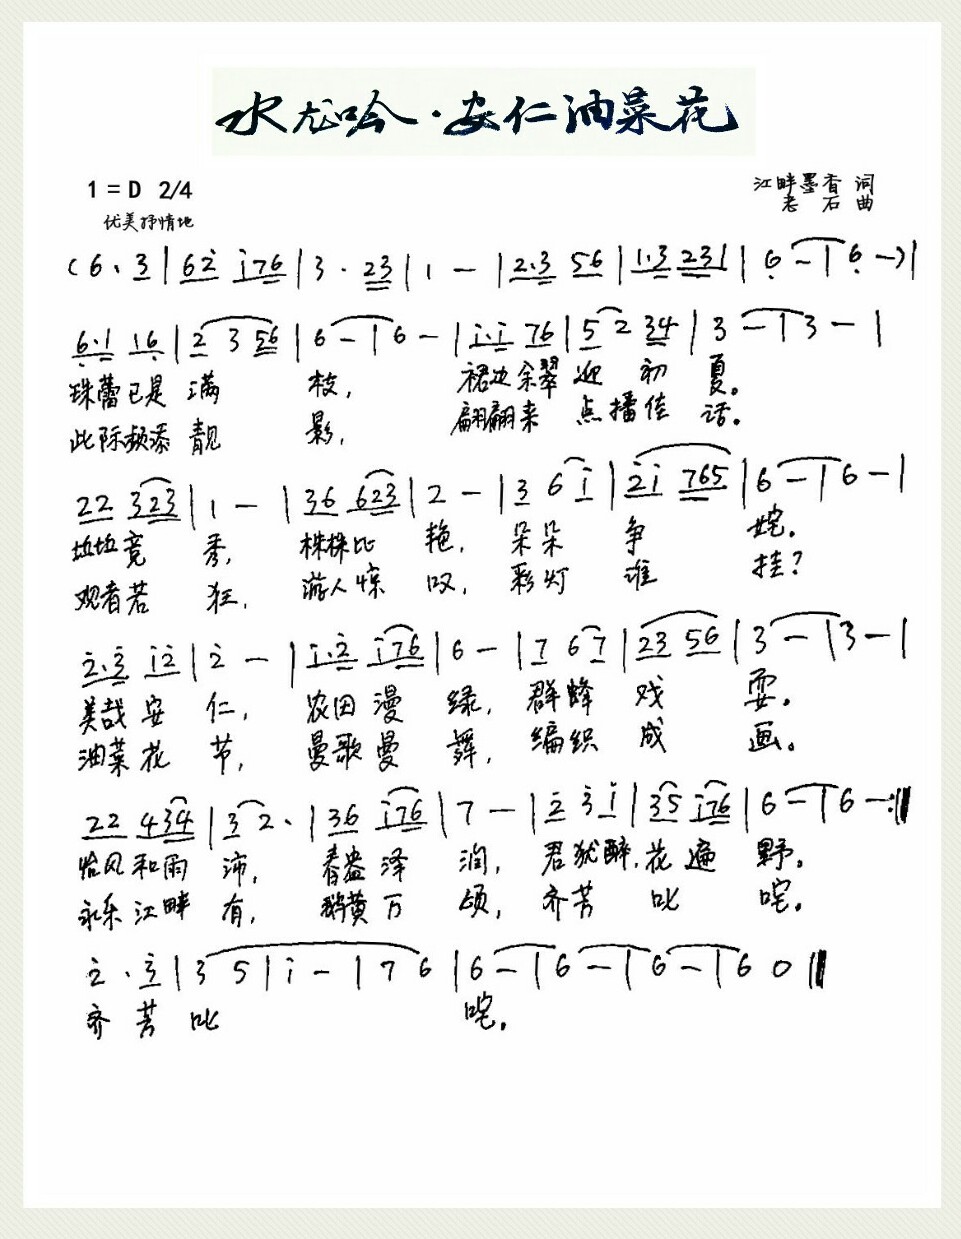 水龙吟·安仁油菜花
1 = D 2/4
江畔墨香 词
优美抒情地
老石 曲
( 6· 3 | 6 2̇ i 7 6 | 3 · 2 3 | 1 — | 2·3 5 6 | 1·3 2 3 1 | 6̣ — | 6̣ — ) |
6̣·1 1 6̣ | 2 3 5 6 | 6 — | 6 — | i·i 7 6 | 5 2 3 4 | 3 — | 3 — |
珠蕾已是 满 枝, 裙边余翠 迎 初 夏。
此际频添 靓 影, 翩翩来 点播佳 话。
2 2 3 2 3 | 1 — | 3 6 6 2 3 | 2 — | 3 6 i | 2̇ i 7 6 5 | 6 — | 6 — |
垃垃竞 秀, 株株比 艳, 朵朵 争 姹。
观者若 狂, 游人惊 叹, 彩灯 谁 挂?
2̇·3̇ i 2̇ | 2̇ — | i·2̇ i 7 6 | 6 — | 7 6 7 | 2 3 5 6 | 3 — | 3 — |
美哉安 仁, 农田漫 绿, 群蜂 戏 耍。
油菜花 节, 曼歌曼 舞, 编织 成 画。
2 2 4 3 4 | 3 2 · | 3 6 i 7 6 | 7 — | 2̇ 3̇ i | 3 5 i 7 6 | 6 — | 6 — :‖
恰风和雨 沛, 春盎泽 润, 君犹醉,花遍 野。
永乐江畔 有, 鹅黄万 顷, 齐芳 叱 咤。
2̇ · 3̇ | 3 5 | i — | 7 6 | 6 — | 6 — | 6 — | 6 0 ‖
齐 芳 叱 咤。